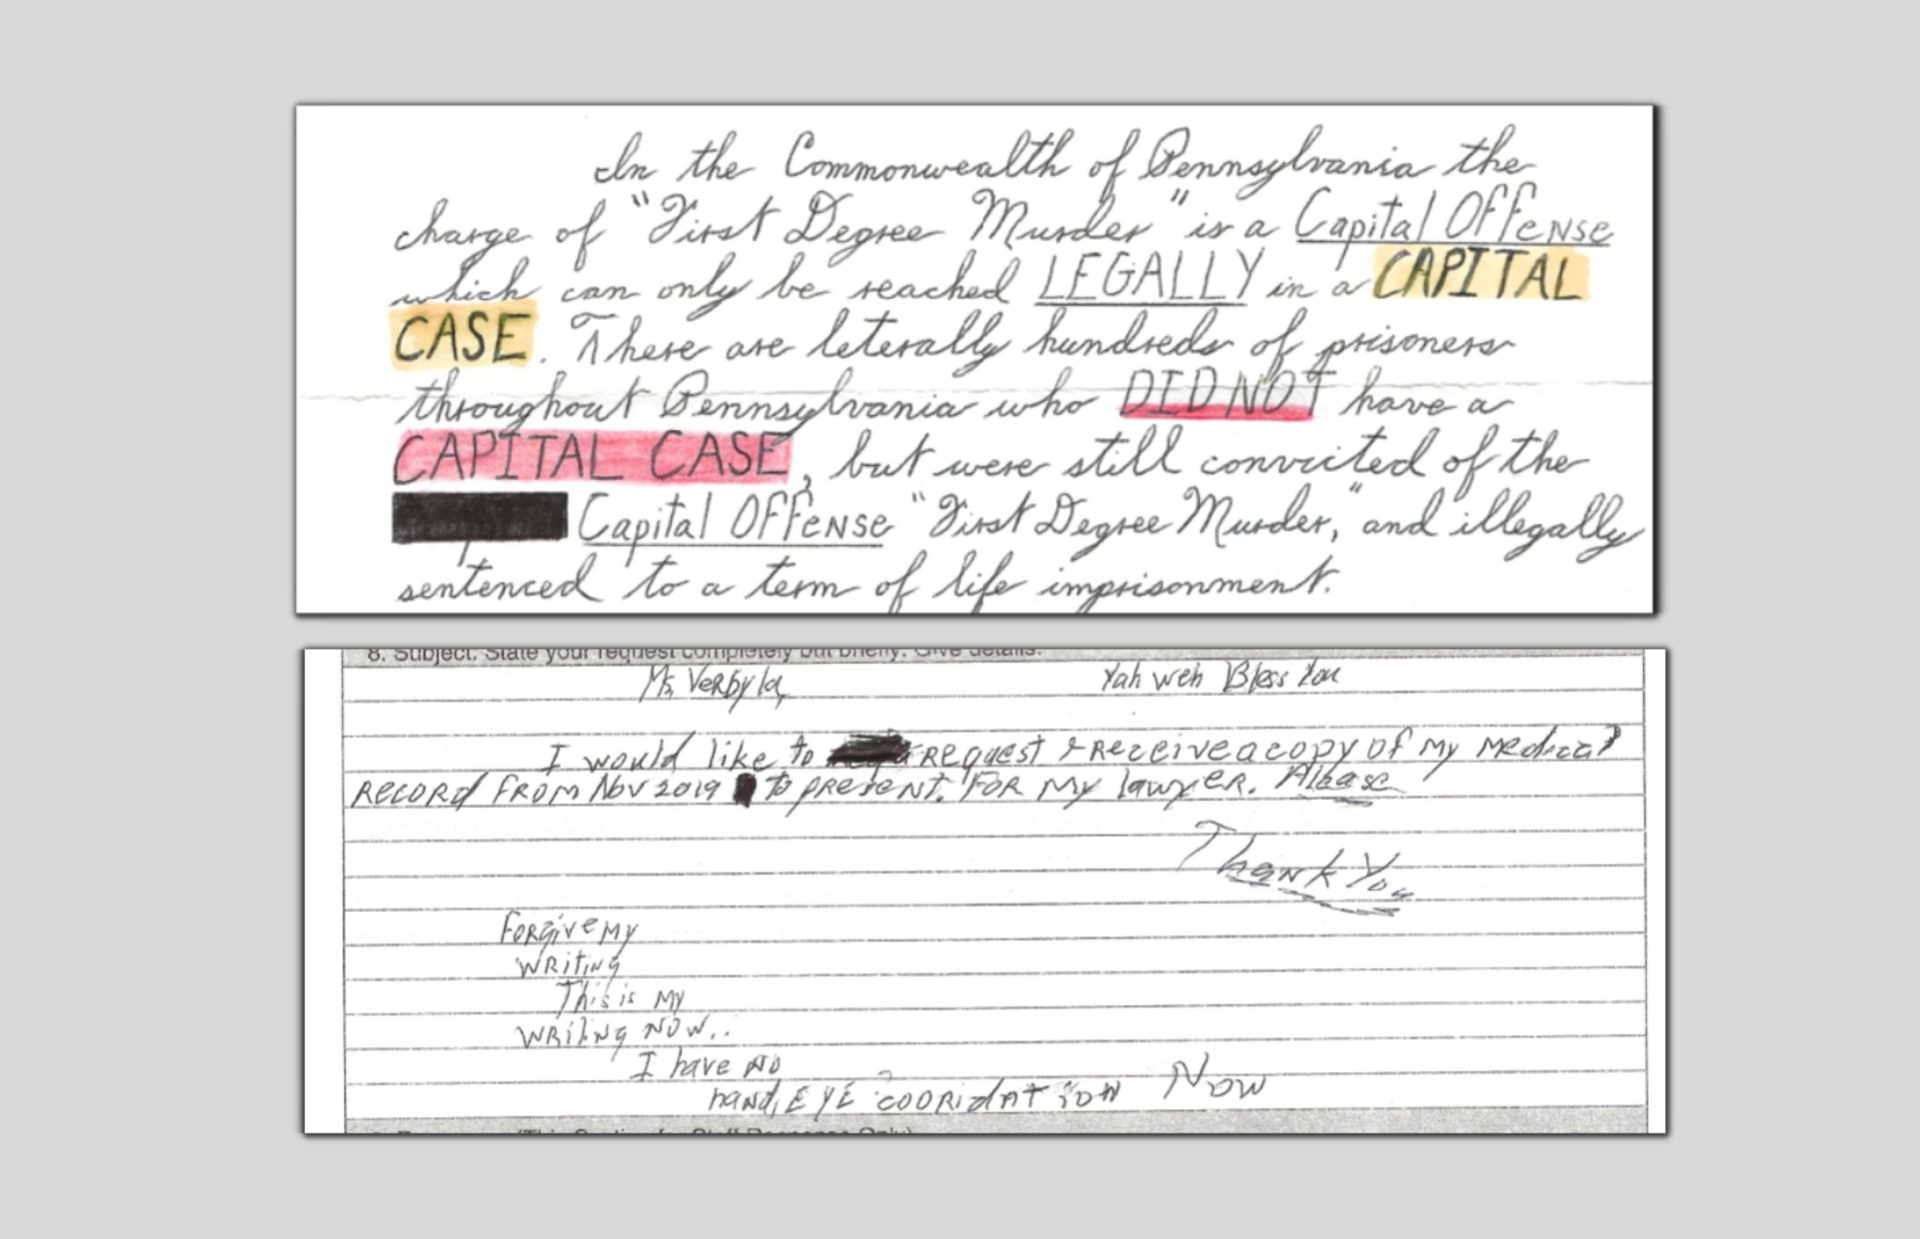 In the Commonwealth of Pennsylvania the
charge of "First Degree Murder" is a Capital Offense
which can only be reached LEGALLY in a CAPITAL
CASE. There are leterally hundreds of prisoners
throughout Pennsylvania who DID NOT have a
CAPITAL CASE, but were still convicted of the
Capital Offense "First Degree Murder," and illegally
sentenced to a term of life imprisonment.
8. Subject: State your request completely but briefly. Give details.
Ms Verbyla, Yah weh Bless You
I would like to request & receive a copy of my medical
RECORD FROM Nov 2019 to present. FOR my lawyer. Please
Thank You
Forgive my
writing
This is my
writing now..
I have no
hand, EYE cooridation Now
(This Section for Staff Response Only)